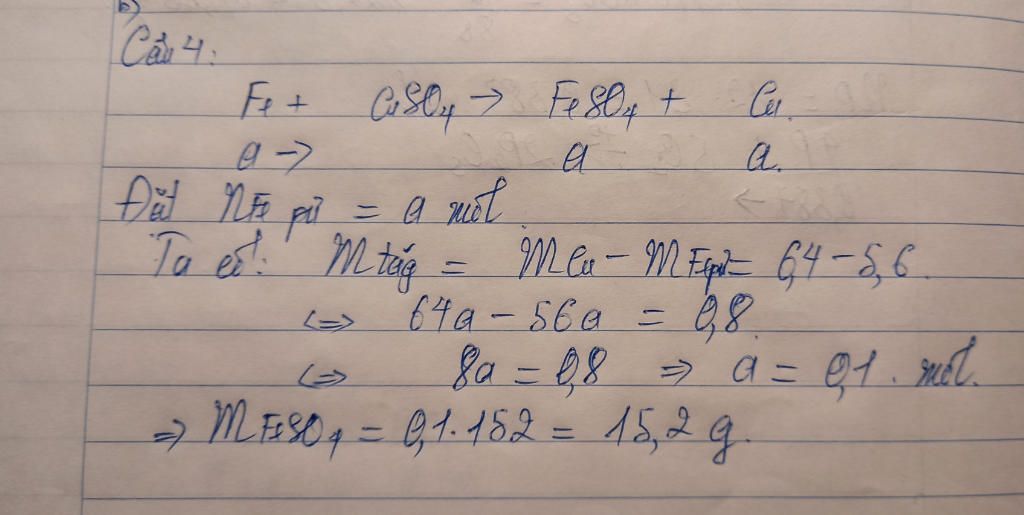 b)
Câu 4:
Fe + CuSO4 → FeSO4 + Cu.
a → a a.
Đặt nFe pứ = a mol
Ta có: m tăg = mCu - mFe pứ = 6,4 - 5,6.
<=> 64a - 56a = 0,8.
<=> 8a = 0,8 => a = 0,1 . mol.
=> mFeSO4 = 0,1.152 = 15,2 g.